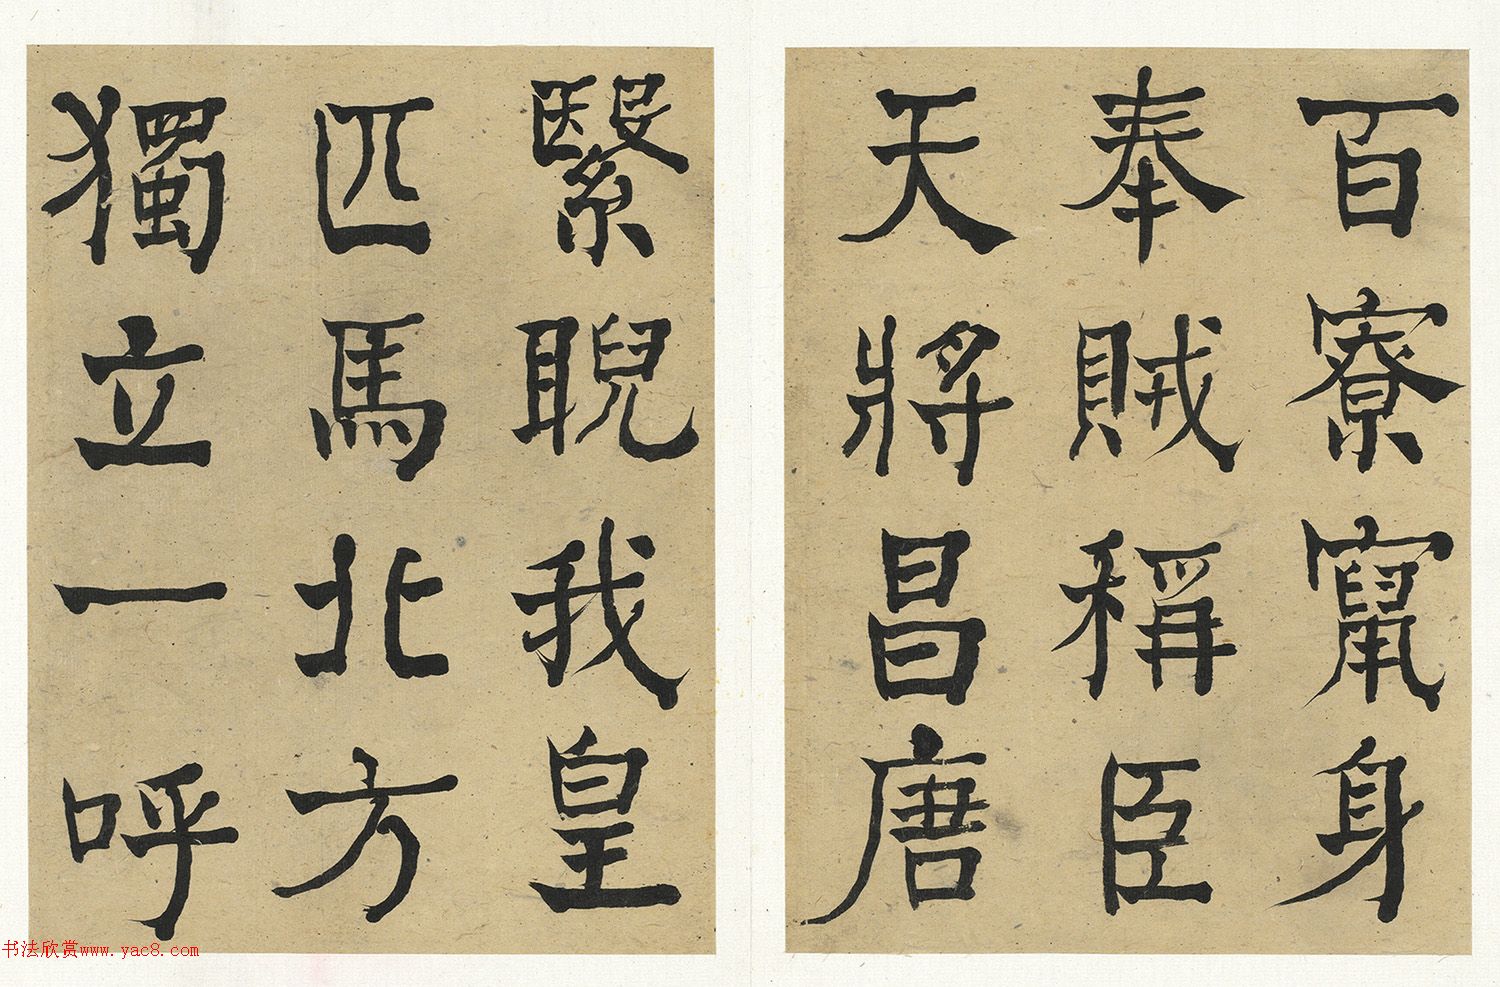 百寮竄身
奉賊稱臣
天將昌唐
繄睨我皇
匹馬北方
獨立一呼
书法欣赏www.yac8.com